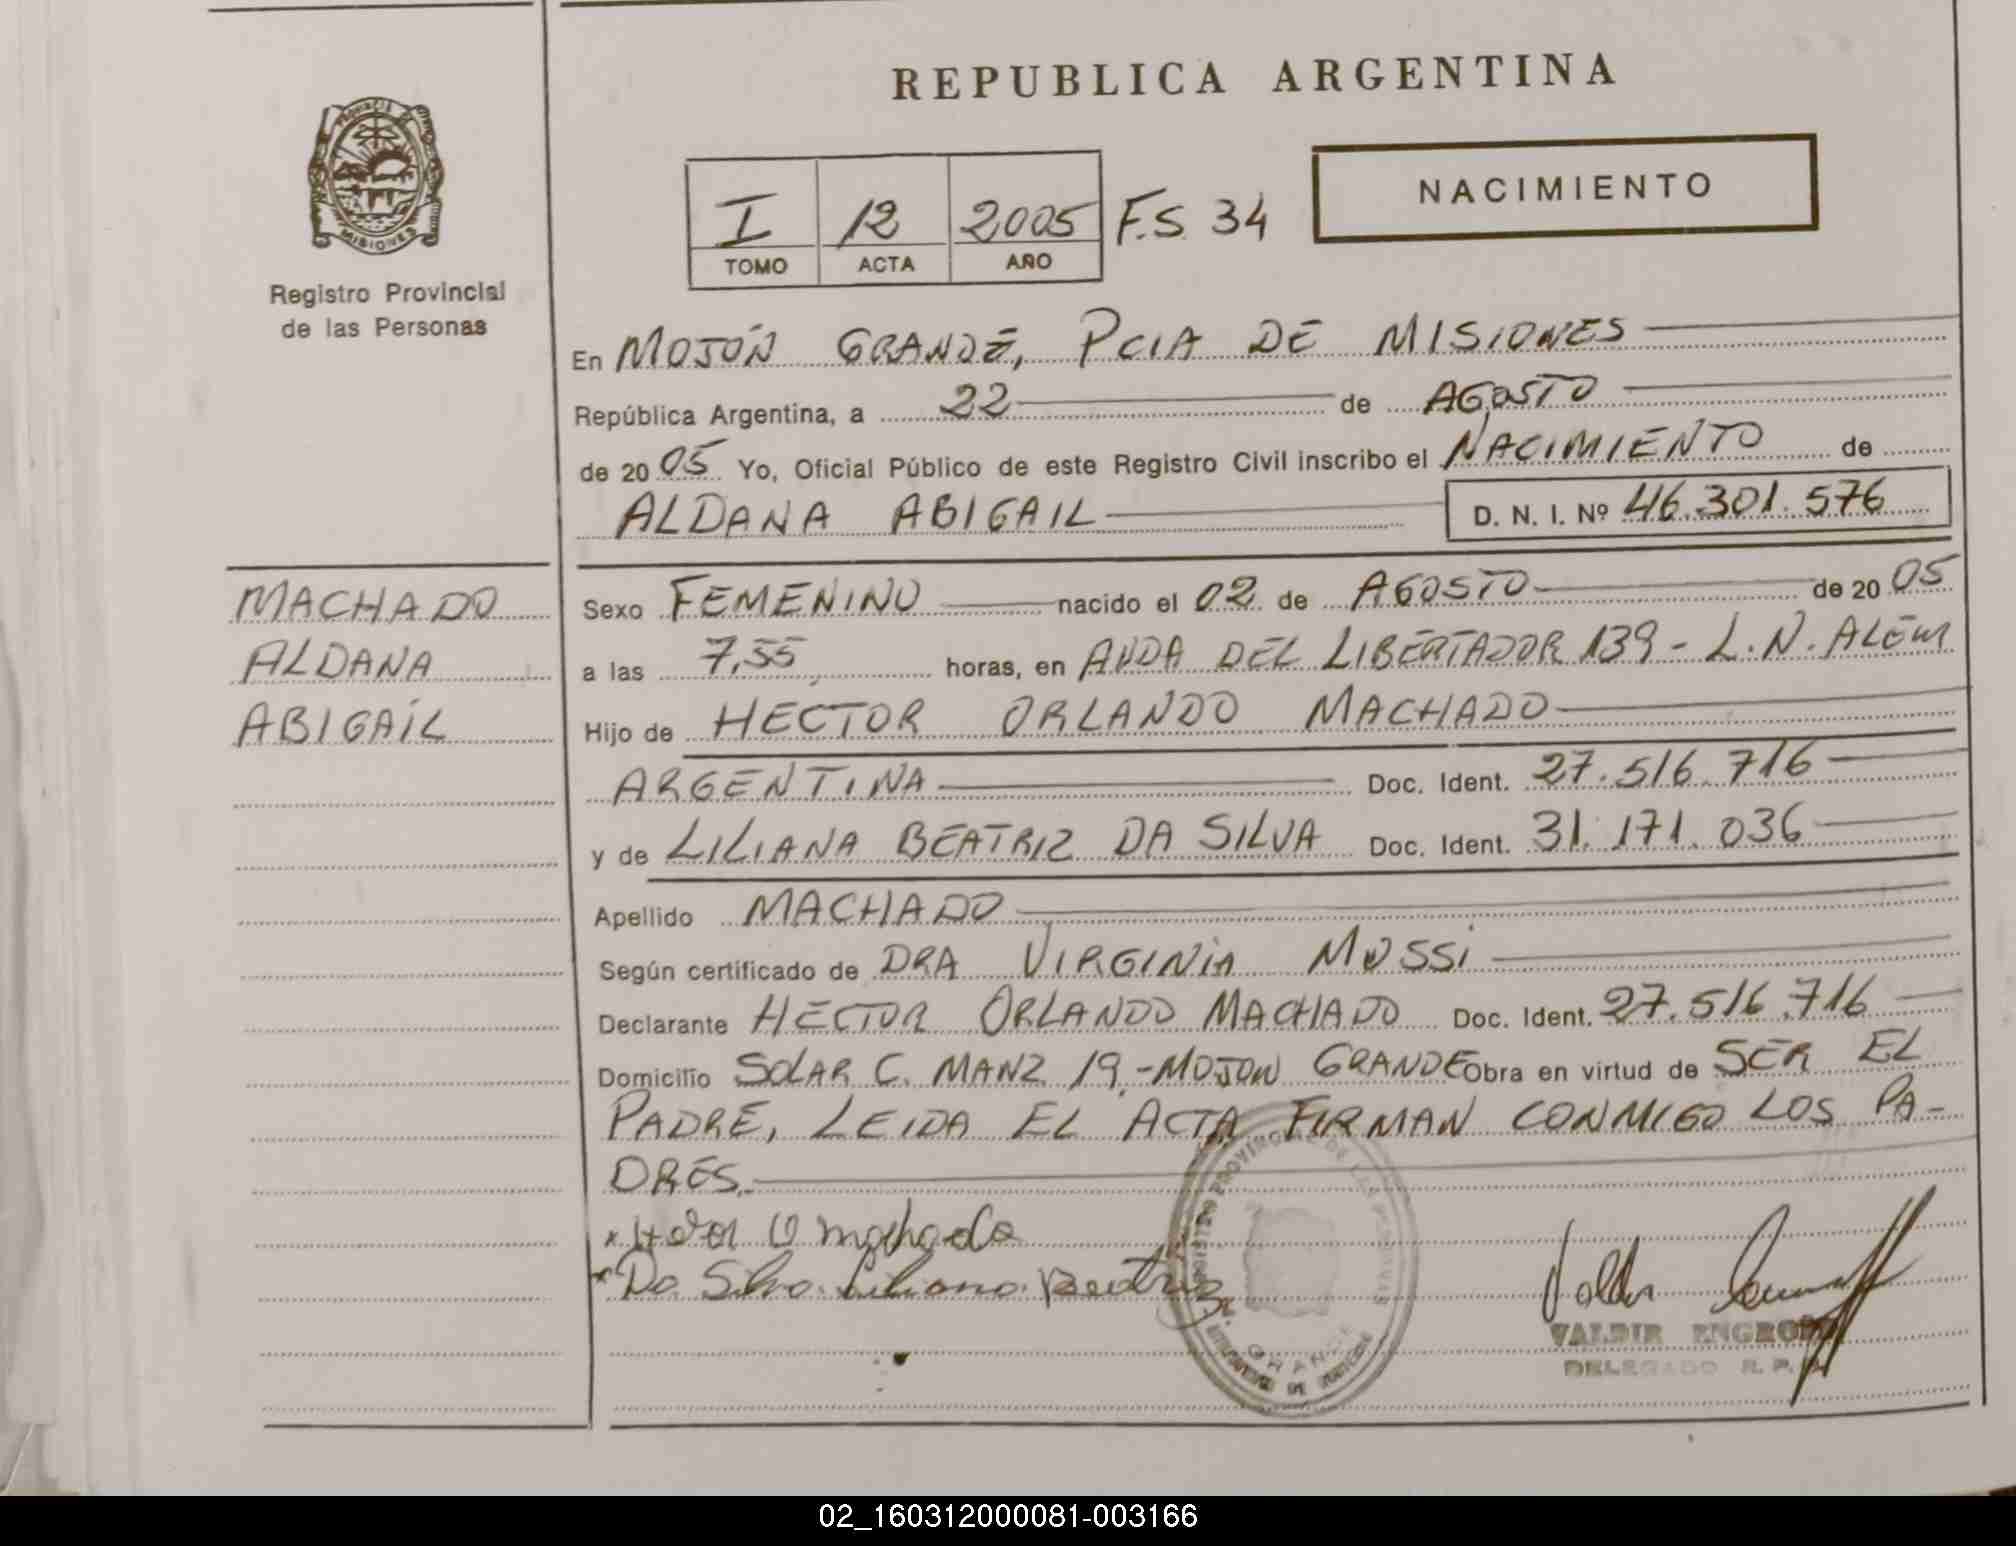 REPUBLICA ARGENTINA
PROVINCIA DE MISIONES
Registro Provincial
de las Personas
I 12 2005 F.S. 34
TOMO ACTA AÑO
NACIMIENTO
En MOJÓN GRANDE, PCIA DE MISIONES
República Argentina, a 22 de AGOSTO
de 2005 Yo, Oficial Público de este Registro Civil inscribo el NACIMIENTO de
ALDANA ABIGAIL D. N. I. Nº 46.301.576
MACHADO
ALDANA
ABIGAÍL
Sexo FEMENINO nacido el 02 de AGOSTO de 2005
a las 7,55 horas, en AVDA DEL LIBERTADOR 139 - L.N. ALEM
Hijo de HECTOR ORLANDO MACHADO
ARGENTINA Doc. Ident. 27.516.716
y de LILIANA BEATRIZ DA SILVA Doc. Ident. 31.171.036
Apellido MACHADO
Según certificado de DRA VIRGINIA MOSSI
Declarante HECTOR ORLANDO MACHADO Doc. Ident. 27.516.716
Domicilio SOLAR C. MANZ 19.-MOJON GRANDE Obra en virtud de SER EL
PADRE, LEIDA EL ACTA FIRMAN CONMIGO LOS PA-
DRES.-
x Hector O machado
x Da Silva Liliana Beatriz
REGISTRO PROVINCIAL DE LAS PERSONAS
GRANDE
VALDIR ENGROFF
DELEGADO R.P.P.
02_160312000081-003166